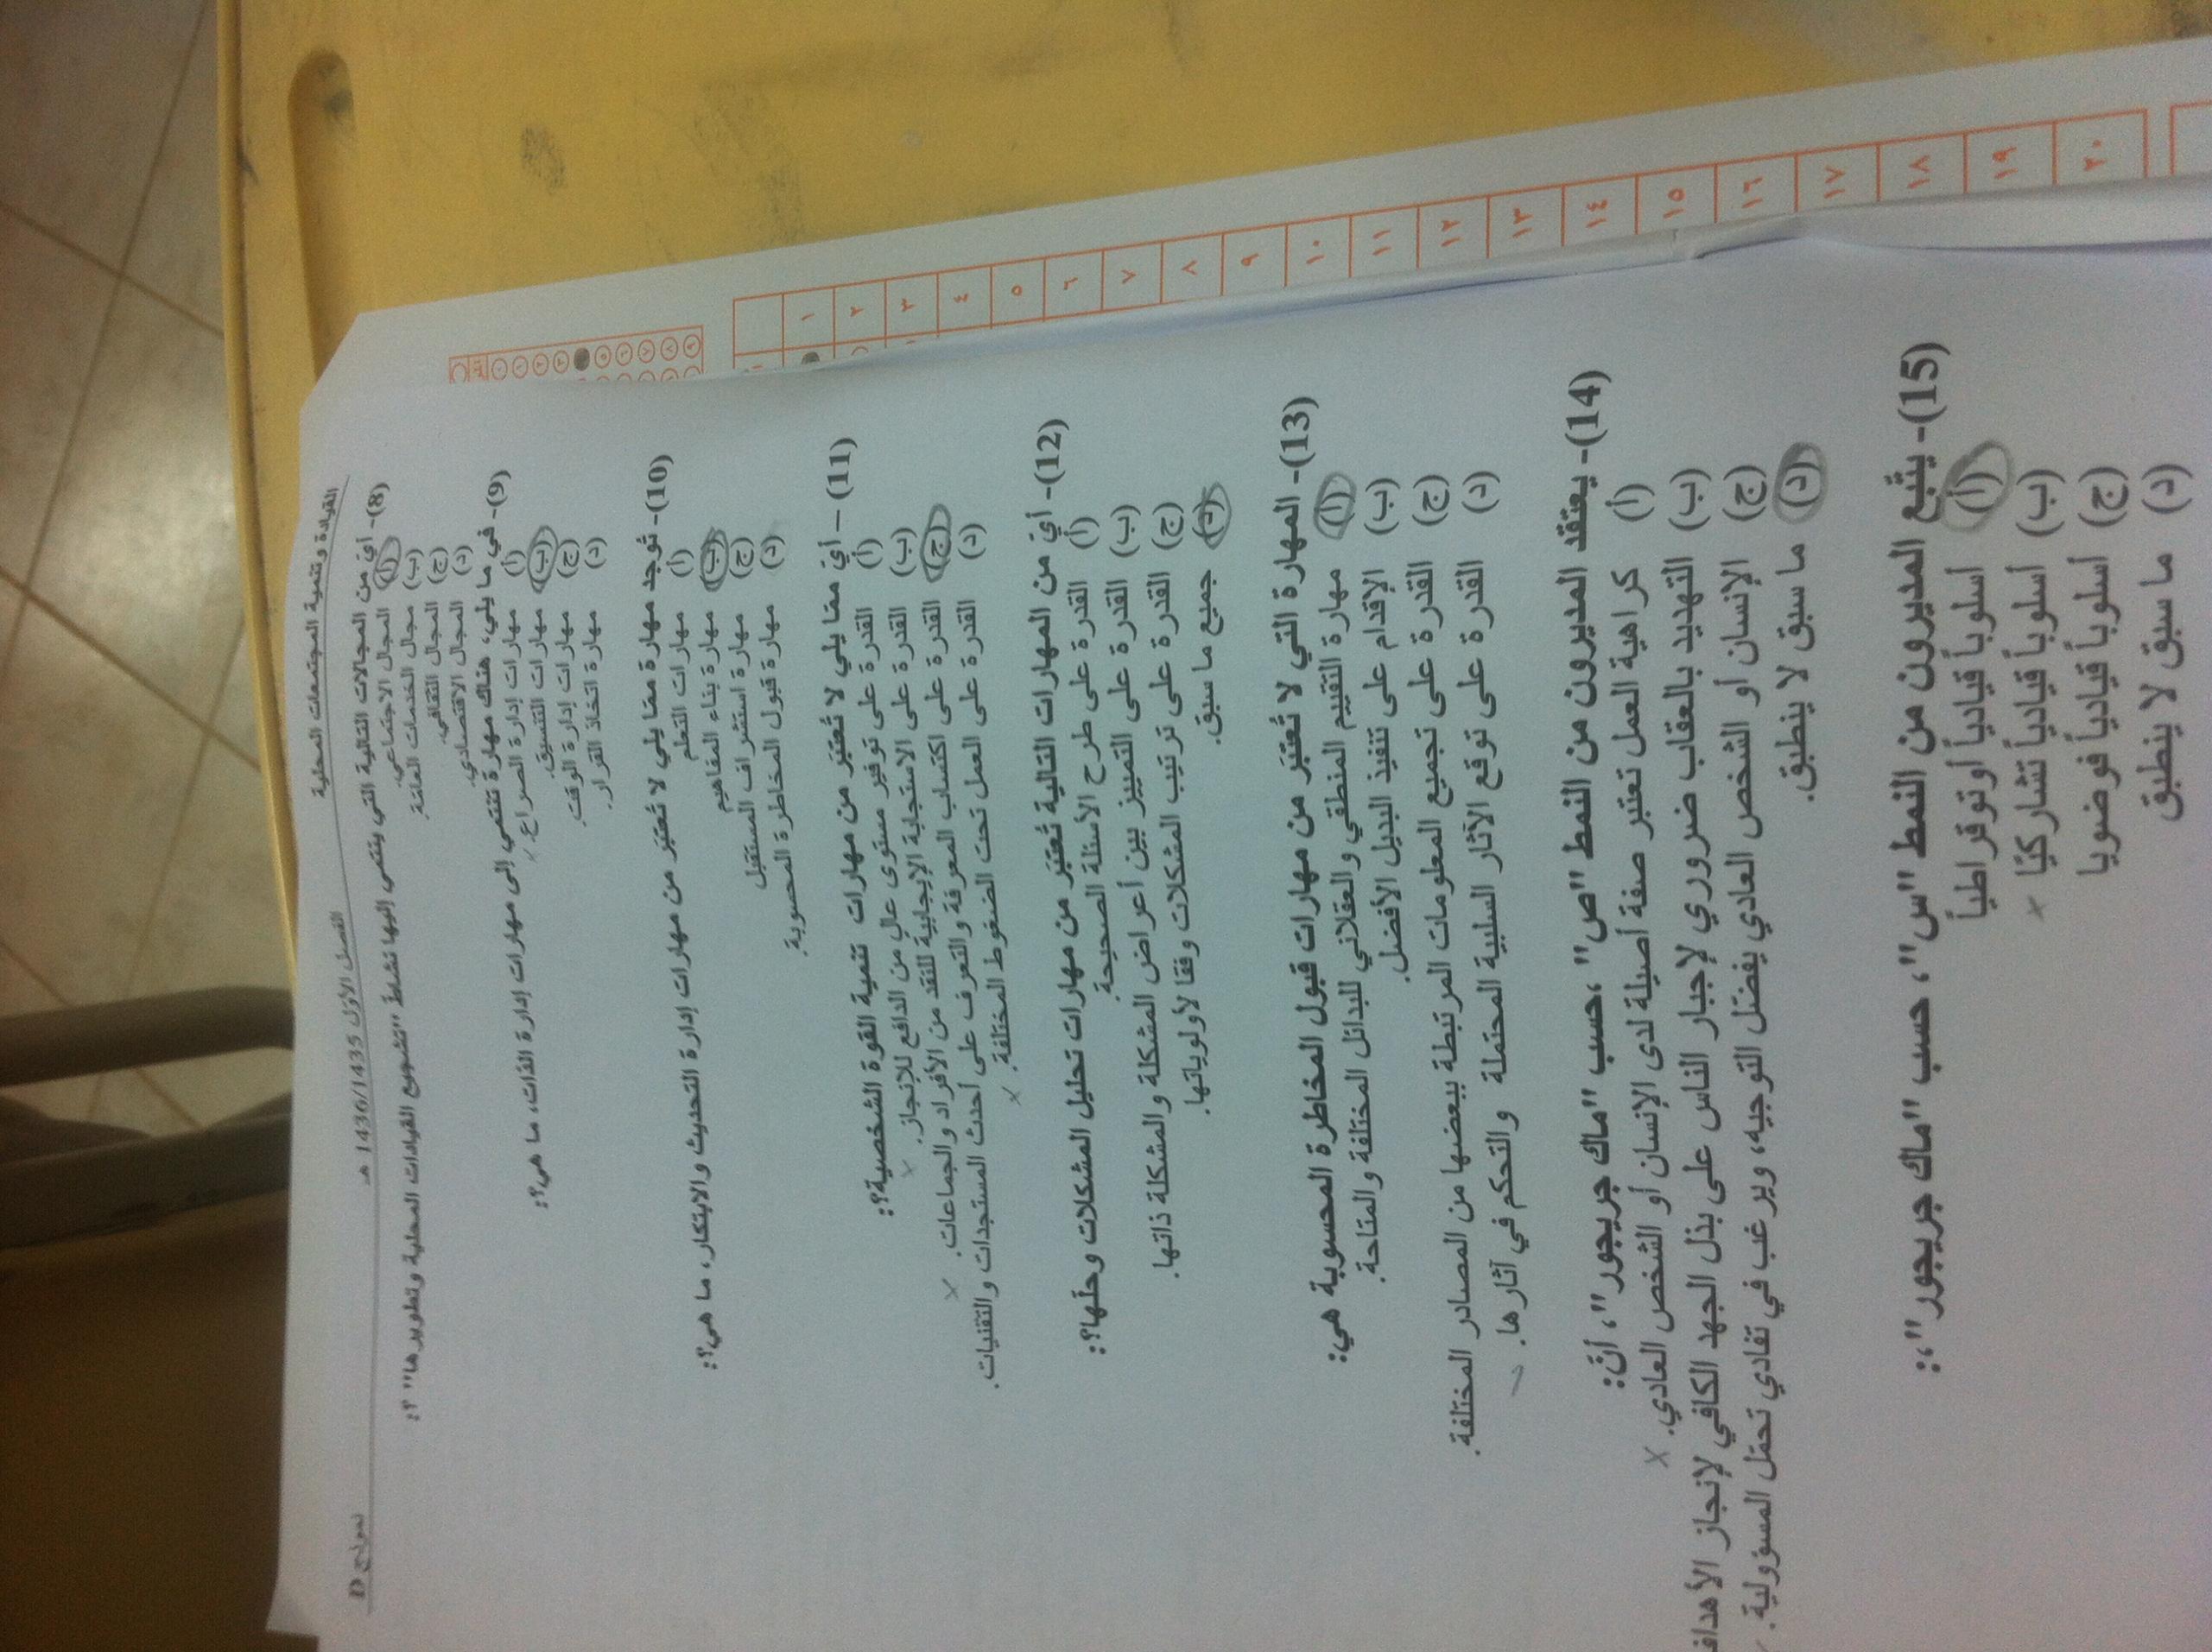 القيادة وتنمية المجتمعات المحلية
الفصل الأول 1436/1435 هـ
نموذج D
(8)- أيّ من المجالات التالية التي ينتمي إليها نشاط "تشجيع القيادات المحلية وتطويرها" ؟:
(أ) المجال الاجتماعي.
(ب) مجال الخدمات العامّة.
(ج) المجال الثقافي.
(د) المجال الاقتصادي.
(9)- في ما يلي، هناك مهارة تنتمي إلى مهارات إدارة الذات، ما هي؟:
(أ) مهارات إدارة الصراع. x
(ب) مهارات التنسيق.
(ج) مهارات إدارة الوقت.
(د) مهارة اتخاذ القرار.
(10)- تُوجد مهارة ممّا يلي لا تُعتَبَر من مهارات إدارة التحديث والابتكار، ما هي؟:
(أ) مهارات التعلم
(ب) مهارة بناء المفاهيم
(ج) مهارة استشراف المستقبل
(د) مهارة قبول المخاطرة المحسوبة.
(11) – أيّ ممّا يلي لا تُعتَبَر من مهارات تنمية القوة الشخصية؟:
(أ) القدرة على توفير مستوى عالٍ من الدافع للإنجاز. x
(ب) القدرة على الاستجابة الإيجابية للنقد من الأفراد والجماعات. x
(ج) القدرة على اكتساب المعرفة والتعرف على أحدث المستجدات والتقنيات.
(د) القدرة على العمل تحت الضغوط المختلفة. x
(12)- أيّ من المهارات التالية تُعتَبَر من مهارات تحليل المشكلات وحلّها؟:
(أ) القدرة على طرح الأسئلة الصحيحة.
(ب) القدرة على التمييز بين أعراض المشكلة والمشكلة ذاتها.
(ج) القدرة على ترتيب المشكلات وفقا لأولوياتها.
(د) جميع ما سبق.
(13)- المهارة التي لا تُعتَبَر من مهارات قبول المخاطرة المحسوبة هي:
(أ) مهارة التقييم المنطقي والعقلاني للبدائل المختلفة والمتاحة.
(ب) الإقدام على تنفيذ البديل الأفضل.
(ج) القدرة على تجميع المعلومات المرتبطة ببعضها من المصادر المختلفة.
(د) القدرة على توقع الآثار السلبية المحتملة والتحكم في آثارها.
(14)- يعتقد المديرون من النمط "ص"، حسب "ماك جريجور"، أنّ:
(أ) كراهية العمل تعتبر صفة أصيلة لدى الإنسان أو الشخص العادي. x
(ب) التهديد بالعقاب ضروري لإجبار الناس على بذل الجهد الكافي لإنجاز الأهداف
(ج) الإنسان أو الشخص العادي يفضّل التوجيه، ويرغب في تفادي تحمّل المسؤولية.
(د) ما سبق لا ينطبق.
(15)- يتّبع المديرون من النمط "س"، حسب "ماك جريجور"،:
(أ) أسلوباً قيادياً أوتوقراطياً
(ب) أسلوباً قيادياً تشاركيّا x
(ج) أسلوباً قيادياً فوضويا
(د) ما سبق لا ينطبق
١
٢
٣
٤
٥
٦
٧
٨
٩
١٠
١١
١٢
١٣
١٤
١٥
١٦
١٧
١٨
١٩
٢٠